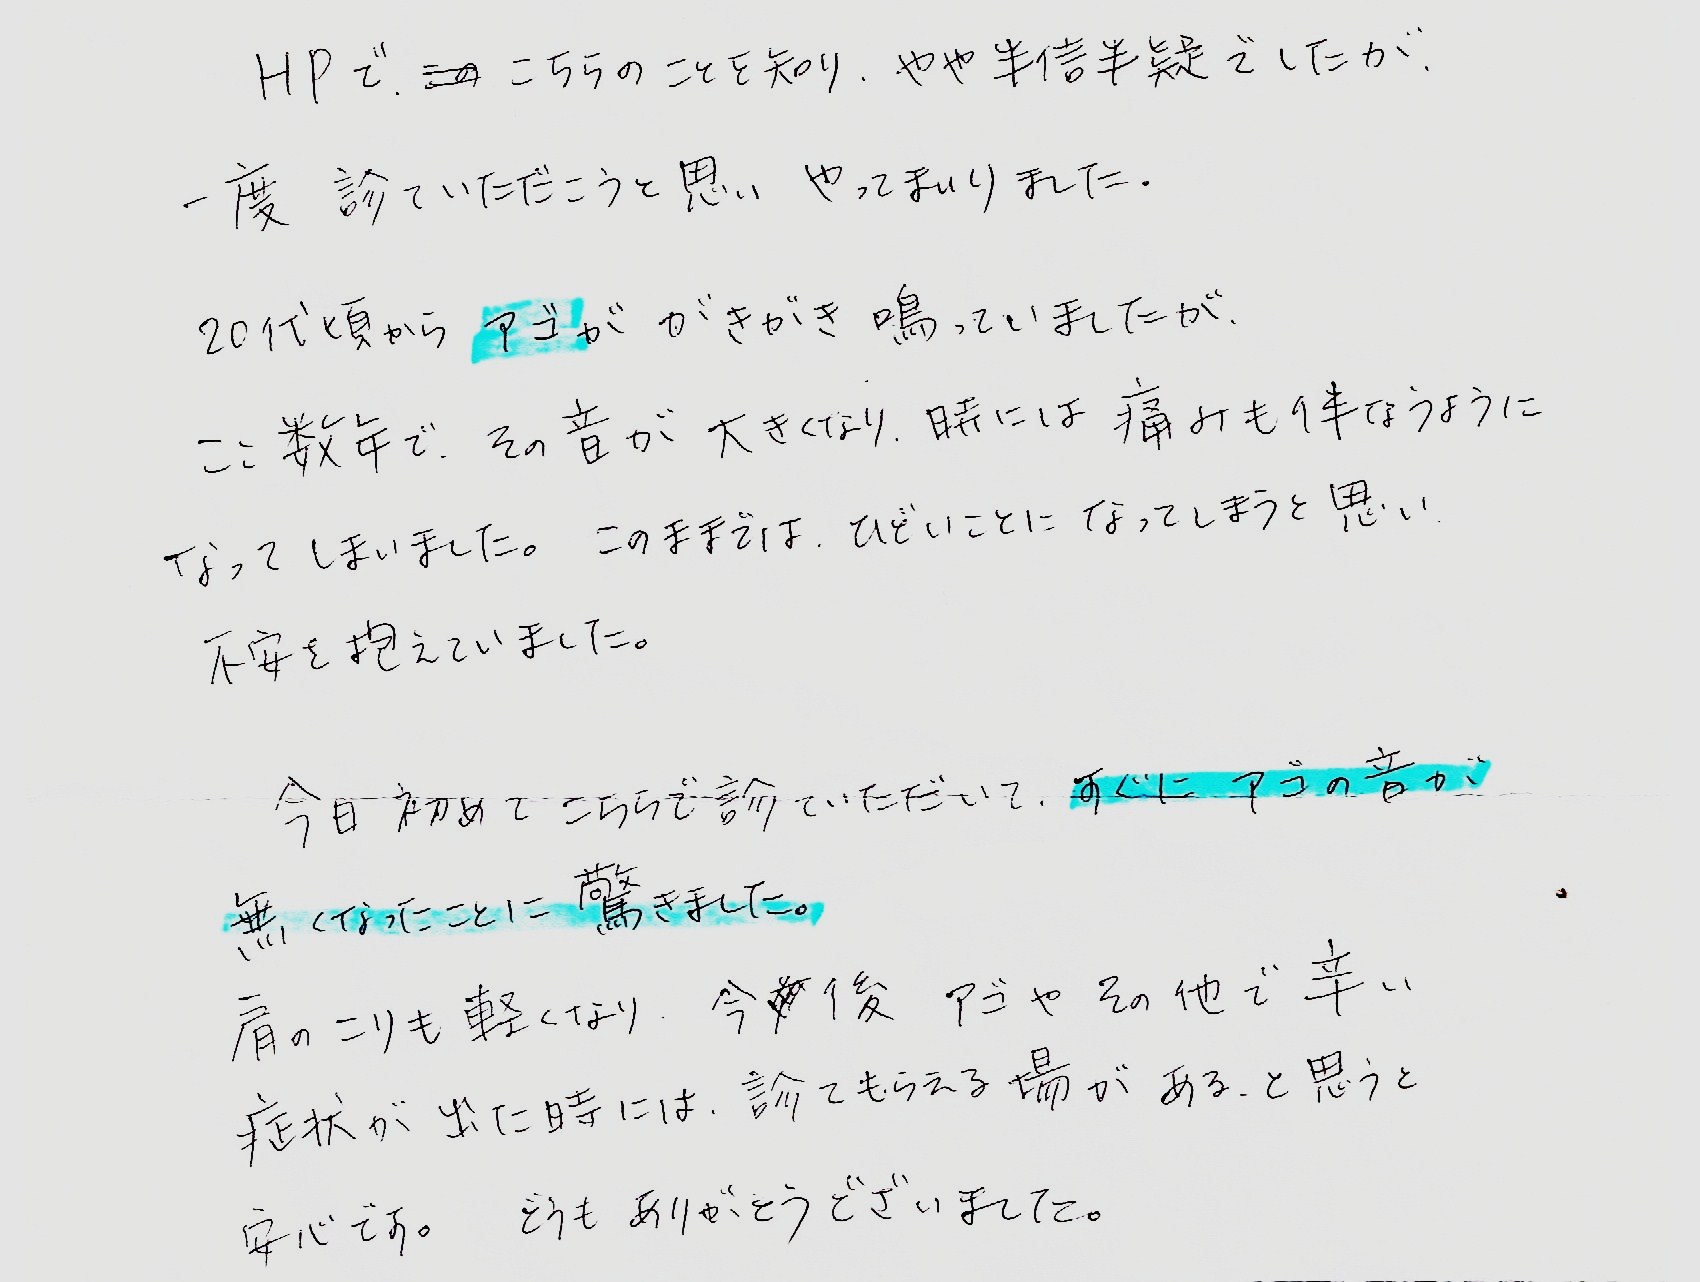 HPで、こちらのことを知り、やや半信半疑でしたが、
一度 診ていただこうと思い やってまいりました。
20代頃から アゴが がきがき 鳴っていましたが、
ここ数年で、その音が 大きくなり、時には 痛みも伴なうように
なってしまいました。このままでは、ひどいことに なってしまうと思い、
不安を抱えていました。
今日初めてこちらで診ていただいて、すぐに アゴの音が
無くなったことに驚きました。
肩のこりも軽くなり、今後 アゴや その他で 辛い
症状が 出た時には、診てもらえる場が ある、と思うと
安心です。 どうもありがとうございました。